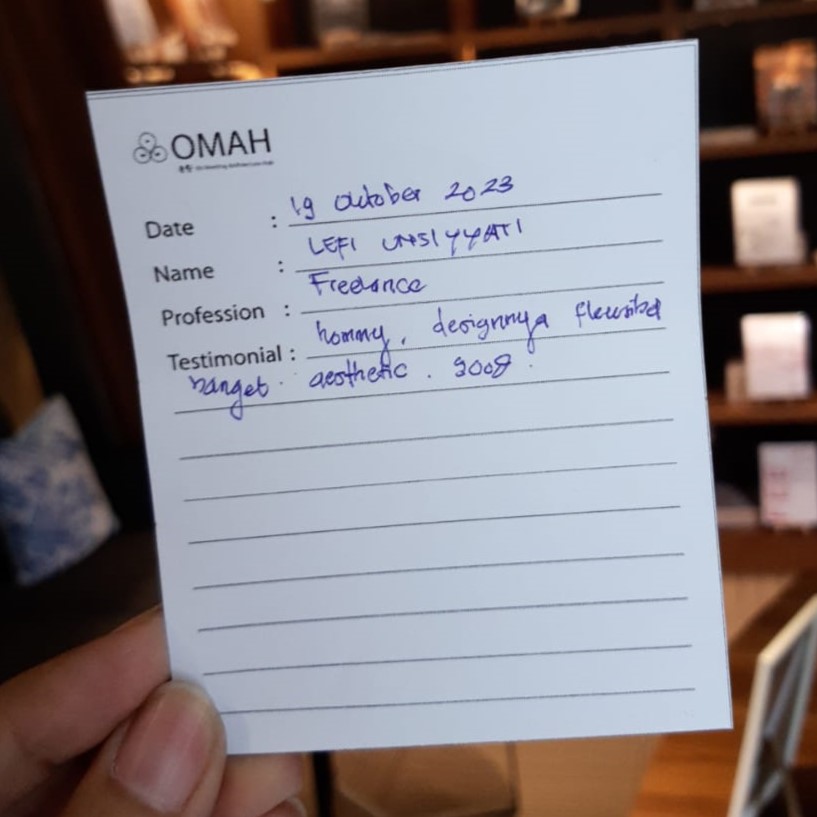 OMAH
Date : 19 October 2023
Name : LEFI
Profession : Freelance
Testimonial : hommy, designnya
banget. aesthetic. good.